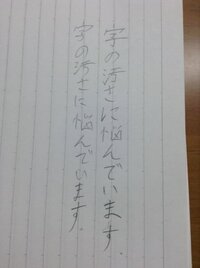 字の汚さに悩んでいます.
字の汚さに悩んでいます.